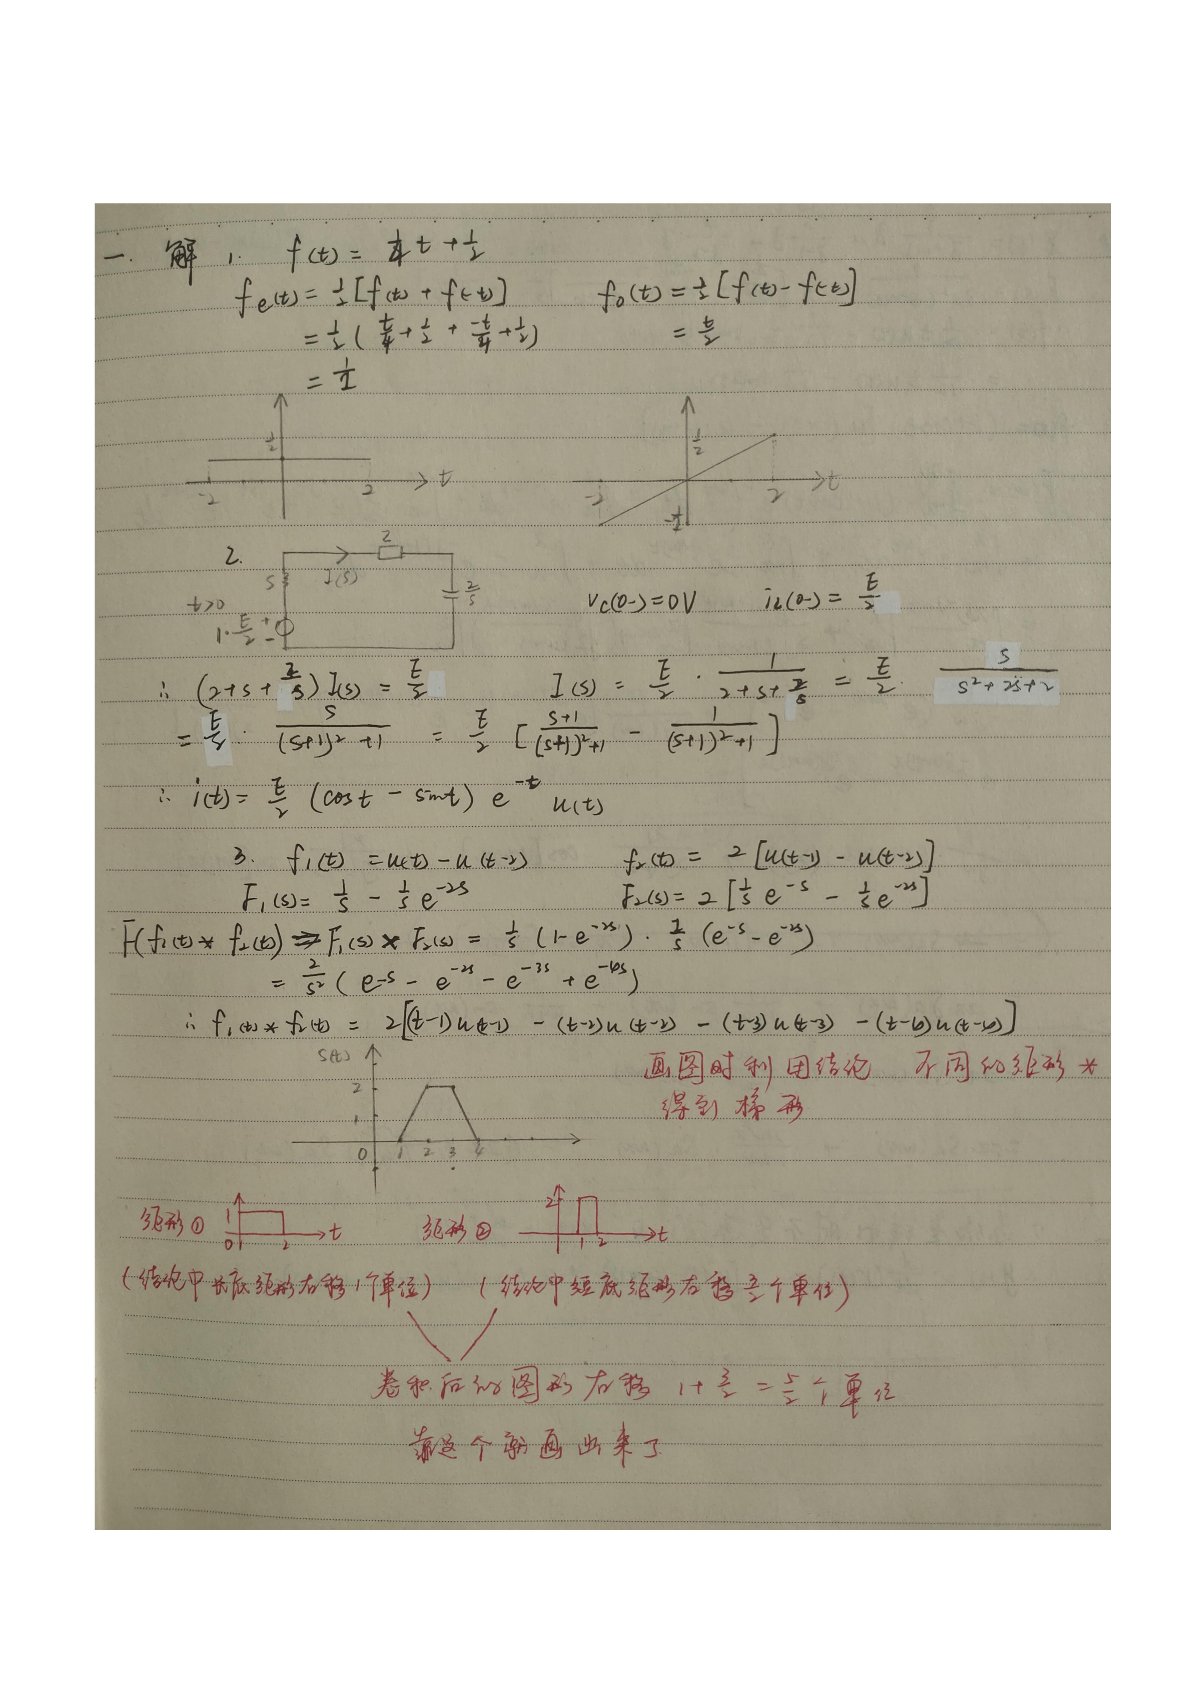 一. 解 1. f(t) = 1/4 t + 1/2
fe(t) = 1/2 [f(t) + f(-t)] fo(t) = 1/2 [f(t) - f(-t)]
= 1/2 ( t/4 + 1/2 + -t/4 + 1/2 ) = t/2
= 1/2
1/2 -2 2 t 1/2 -2 2 t
2. 2 S I(S) 2/S
t>0 1·E/2 + - Vc(0-) = 0V iL(0-) = E/2
∴ (2+S+2/S) I(S) = E/2 I(S) = E/2 · 1/(2+S+2/S) = E/2 · S/(S²+2S+2)
= E/2 · S/((S+1)²+1) = E/2 [ (S+1)/((S+1)²+1) - 1/((S+1)²+1) ]
∴ i(t) = E/2 (cost - sint) e^-t u(t)
3. f1(t) = u(t) - u(t-2) f2(t) = 2 [u(t-1) - u(t-2)]
F1(s) = 1/s - 1/s e^-2s F2(s) = 2 [1/s e^-s - 1/s e^-2s]
F(f1(t) * f2(t)) ⇒ F1(s) × F2(s) = 1/s (1-e^-2s) · 2/s (e^-s - e^-2s)
= 2/s² ( e^-s - e^-2s - e^-3s + e^-6s )
∴ f1(t) * f2(t) = 2[(t-1)u(t-1) - (t-2)u(t-2) - (t-3)u(t-3) - (t-6)u(t-6)]
S(t) 2 1 0 1 2 3 4
画图时利用结论 不同的矩形 *
得到梯形
矩形① 1 0 2 t 矩形② 2 1 2 t
(结论中长底矩形右移1个单位) (结论中短底矩形右移3/2个单位)
卷积后的图形右移 1+3/2 = 5/2 个单位
靠这个就画出来了